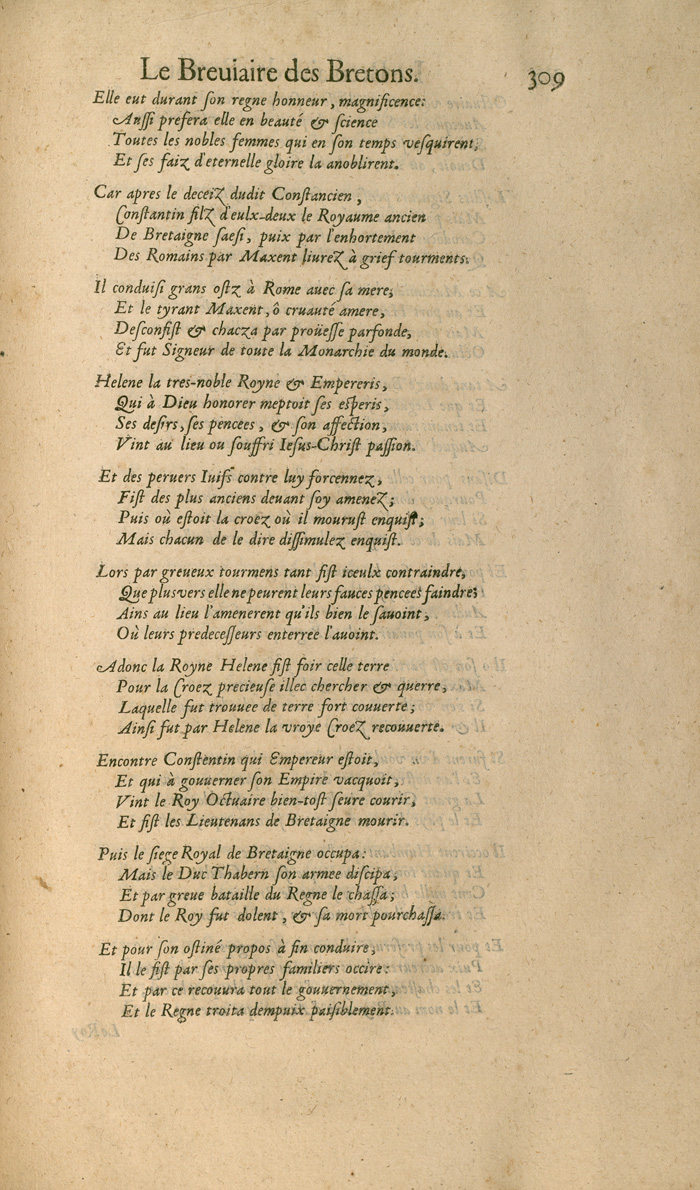 Le Breuiaire des Bretons. 309
Elle eut durant ſon regne honneur, magnificence:
Auſſi prefera elle en beauté & ſcience
Toutes les nobles femmes qui en ſon temps veſquirent;
Et ſes faiz d'eternelle gloire la anoblirent.
Car apres le deceiz dudit Conſtancien,
Conſtantin filz d'eulx-deux le Royaume ancien
De Bretaigne ſaeſi, puix par l'enhortement
Des Romains par Maxent liurez à grief tourments.
Il conduiſi grans oſtz à Rome auec ſa mere;
Et le tyrant Maxent, ô cruauté amere,
Desconfiſt & chacza par proüeſſe parfonde,
Et fut Signeur de toute la Monarchie du monde.
Helene la tres-noble Royne & Empereris,
Qui à Dieu honorer meptoit ſes eſperis,
Ses deſirs, ſes pencees, & ſon affection,
Vint au lieu ou ſouffri Ieſus-Chriſt paſſion.
Et des peruers Iuifs contre luy forcennez,
Fiſt des plus anciens deuant ſoy amenez;
Puis où eſtoit la croez où il mouruſt enquiſt;
Mais chacun de le dire diſſimulez enquiſt.
Lors par greueux tourmens tant fiſt iceulx contraindre,
Que plus vers elle ne peurent leurs fauces pencees faindre;
Ains au lieu l'amenerent qu'ils bien le ſauoint,
Où leurs predeceſſeurs enterree l'auoint.
Adonc la Royne Helene fiſt foir celle terre
Pour la Croez precieuſe illec chercher & querre,
Laquelle fut trouuee de terre fort couuerte;
Ainſi fut par Helene la vroye Croez recouuerte.
Encontre Conſtentin qui Empereur eſtoit,
Et qui à gouuerner ſon Empire vacquoit,
Vint le Roy Octuaire bien-toſt ſeure courir,
Et fiſt les Lieutenans de Bretaigne mourir.
Puis le ſiege Royal de Bretaigne occupa:
Mais le Duc Thabern ſon armee diſcipa,
Et par greue bataille du Regne le chaſſa;
Dont le Roy fut dolent, & ſa mort pourchaſſa.
Et pour ſon oſtiné propos à fin conduire,
Il le fiſt par ſes propres familiers occire:
Et par ce recouura tout le gouuernement,
Et le Regne troita dempuix paiſiblement.